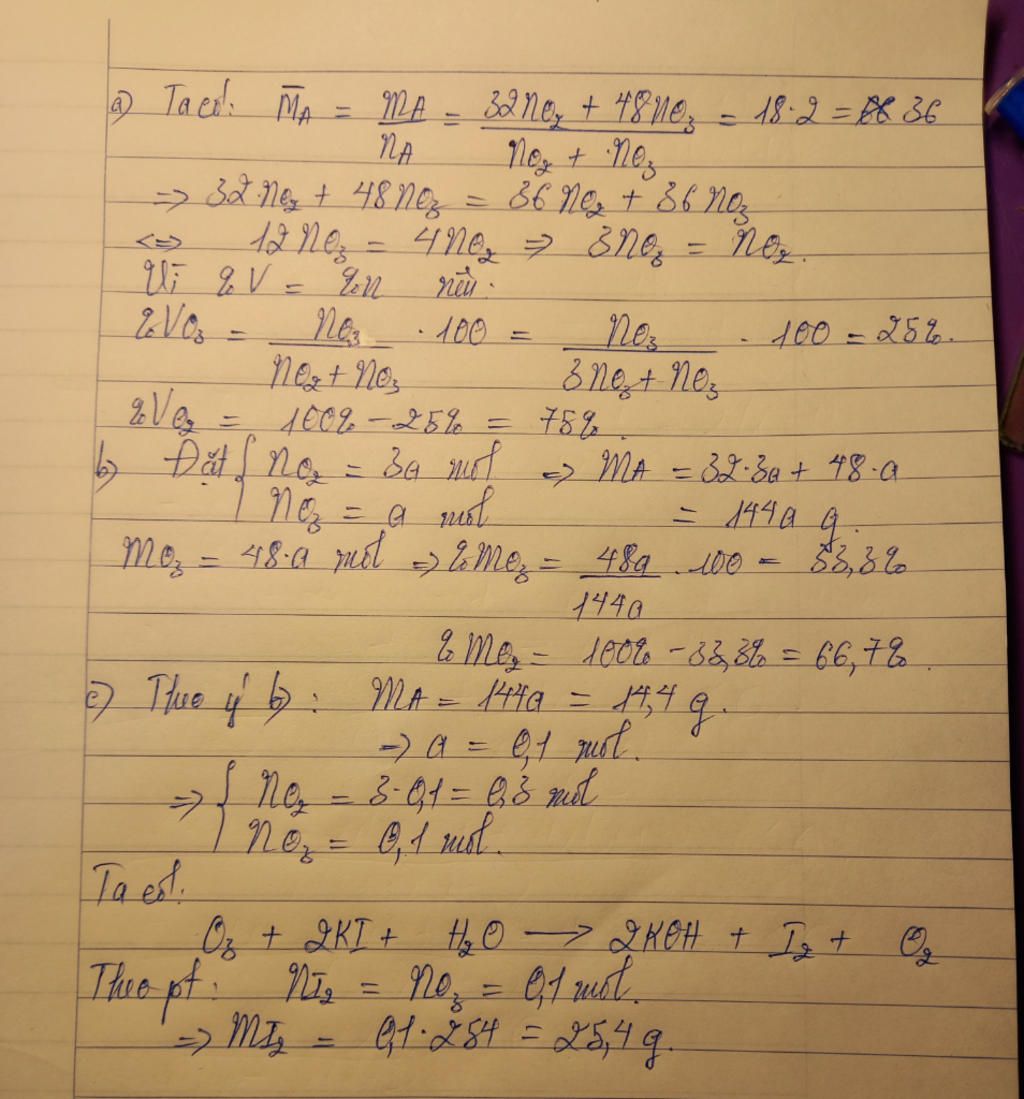 a) Ta có: M̄A = mA/nA = (32nO₂ + 48nO₃)/(nO₂ + nO₃) = 18·2 = 36
=> 32nO₂ + 48nO₃ = 36nO₂ + 36nO₃
<=> 12nO₃ = 4nO₂ => 3nO₃ = nO₂.
Vì %V = %n nên:
%VO₃ = nO₃/(nO₂ + nO₃) · 100 = nO₃/(3nO₃ + nO₃) · 100 = 25%.
%VO₂ = 100% - 25% = 75%.
b) Đặt { nO₂ = 3a mol => mA = 32·3a + 48·a
nO₃ = a mol = 144a g.
mO₃ = 48·a mol => %mO₃ = 48a/144a · 100 = 33,3%
%mO₂ = 100% - 33,3% = 66,7%.
c) Theo ý b): mA = 144a = 14,4 g.
=> a = 0,1 mol.
=> { nO₂ = 3·0,1 = 0,3 mol
nO₃ = 0,1 mol.
Ta có:
O₃ + 2KI + H₂O ⟶ 2KOH + I₂ + O₂
Theo pt: nI₂ = nO₃ = 0,1 mol.
=> mI₂ = 0,1·254 = 25,4 g.